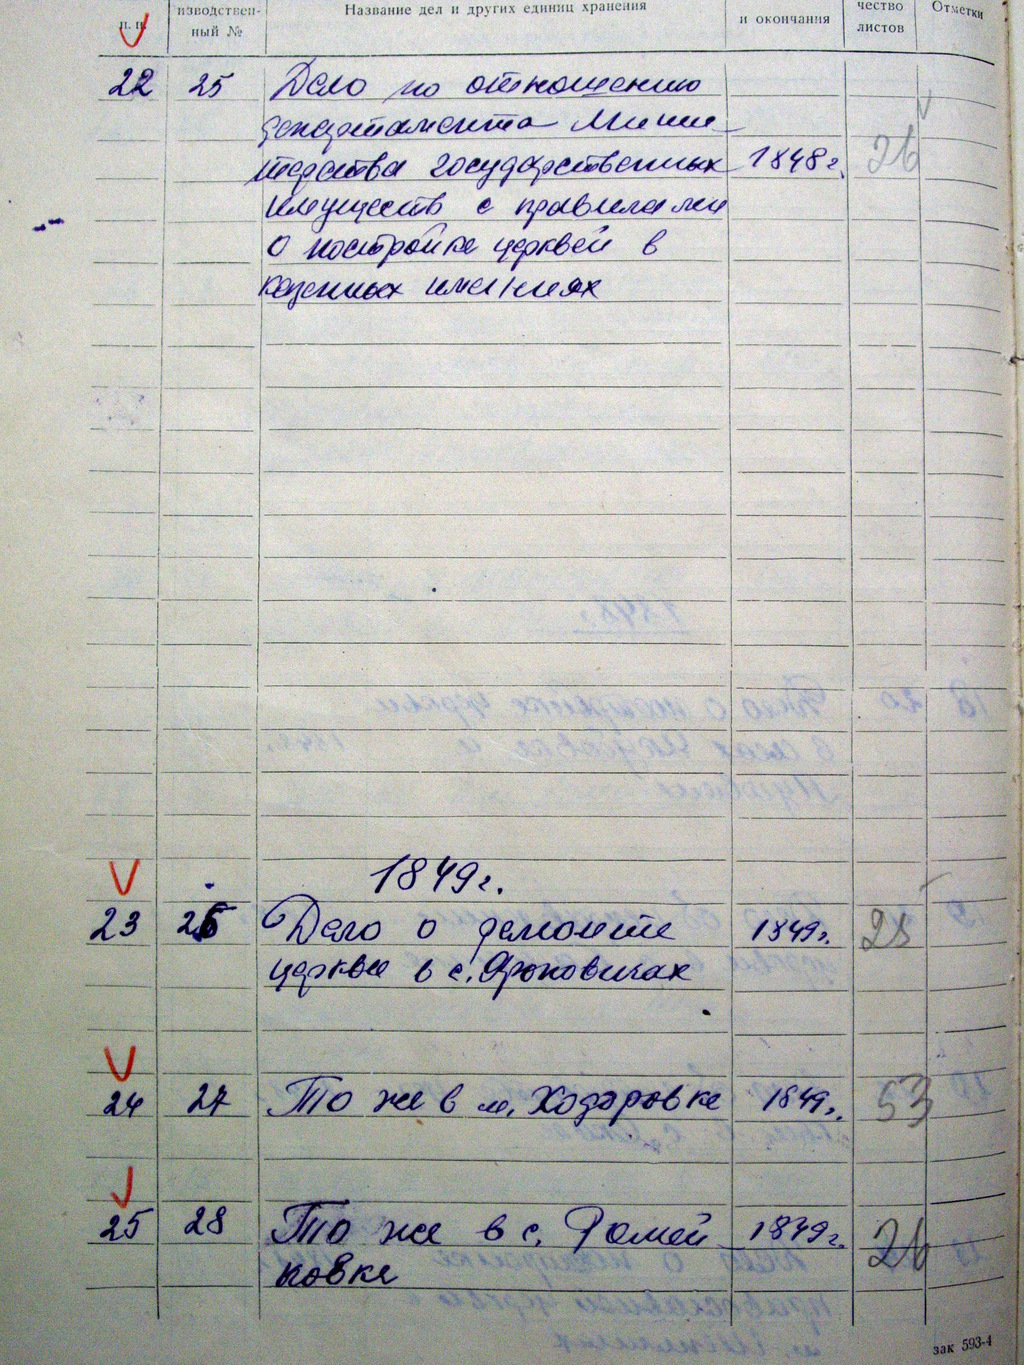 п. п.
изводствен-
ный №
Название дел и других единиц хранения
и окончания
чество
листов
Отметки
22 25 Дело по отношению
департамента Минис
терства государственных 1848 г. 26
имуществ с правилами
о постройке церквей в
казенных имениях
1849 г.
23 26 Дело о ремонте 1849 г. 28
церкви в с.
24 27 То же в м. Ходоровке 1849 г. 53
25 28 То же в с. Ромей 1849 г. 26
ковке
зак 593-4